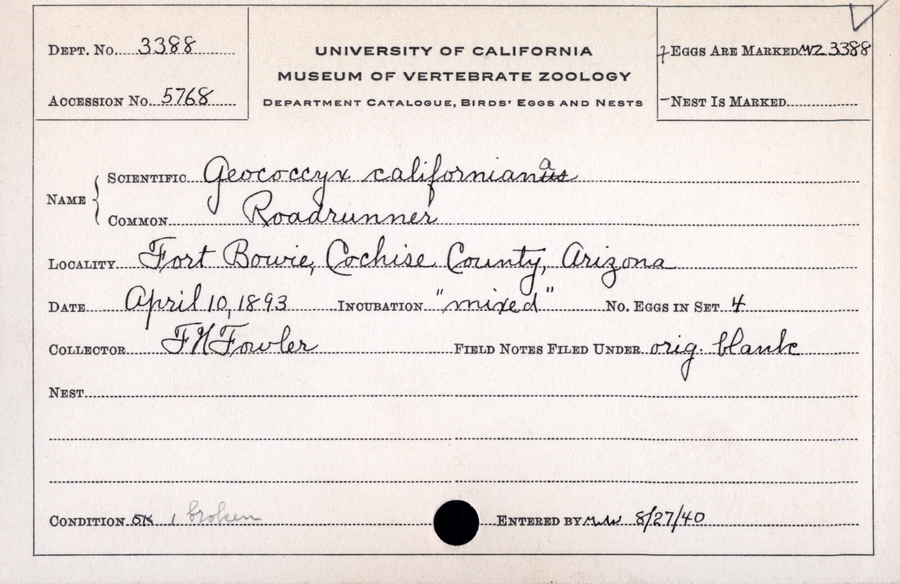 Dept. No. 3388
Accession No. 5768
UNIVERSITY OF CALIFORNIA
MUSEUM OF VERTEBRATE ZOOLOGY
Department Catalogue, Birds' Eggs and Nests
Eggs Are Marked MVZ 3388
Nest Is Marked
Name
Scientific Geococcyx californianus a
Common Roadrunner
Locality Fort Bowie, Cochise County, Arizona
Date April 10, 1893 Incubation "mixed" No. Eggs in Set 4
Collector F H Fowler Field Notes Filed Under orig. blank
Nest
Condition OK 1 broken Entered by 8/27/40